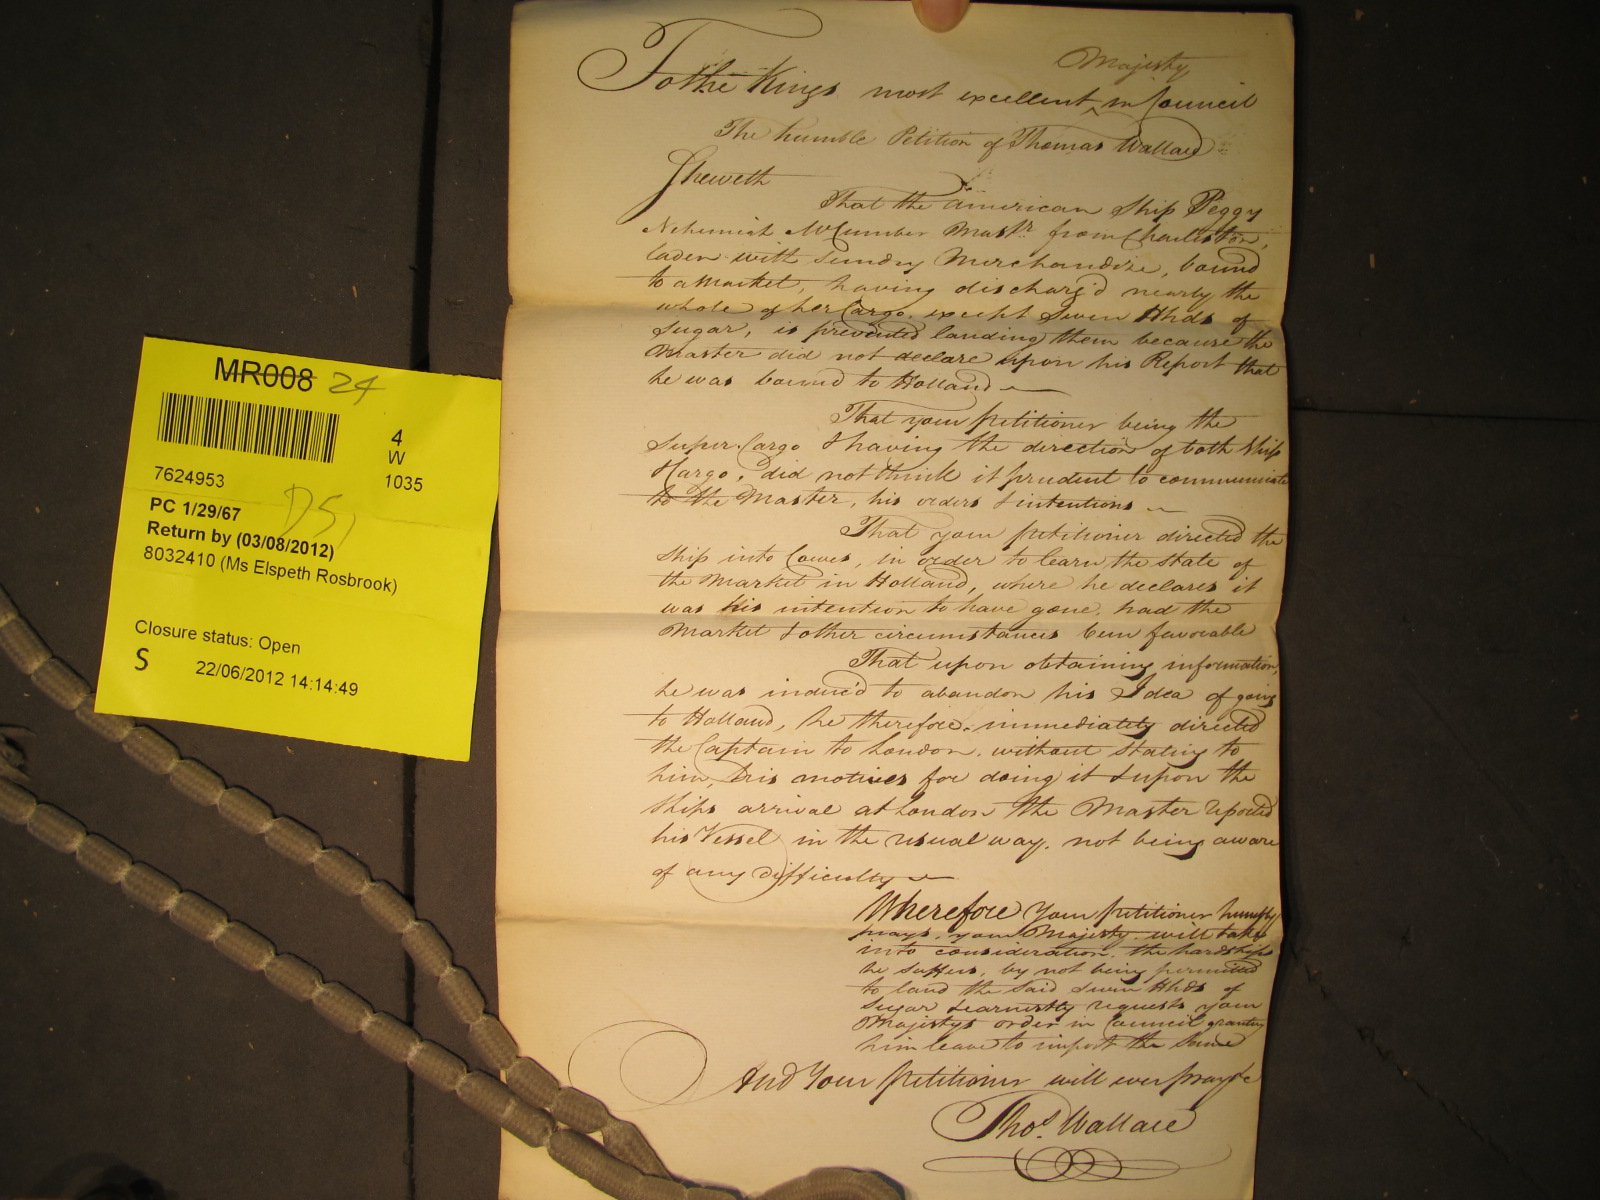 MR008 24
4
W
7624953
1035
PC 1/29/67
DS1
Return by (03/08/2012)
8032410 (Ms Elspeth Rosbrook)
Closure status: Open
S
22/06/2012 14:14:49
Majesty
To the Kings most excellent ^ in Council
The humble Petition of Thomas Wallace
Sheweth
That the American Ship Peggy
Nehemiah McCumber Mastr. from Charleston,
laden with sundry Merchandize, bound
to a Market, having discharg'd nearly the
whole of her Cargo, except Seven Hhds of
Sugar, is prevented landing them because the
Master did not declare upon his Report that
he was bound to Holland
That your petitioner being the
Super Cargo & having the direction of both Ship
& Cargo, did not think it prudent to communicate
to the Master, his orders & intentions
That your petitioner directed the
Ship into Cowes, in order to learn the state of
the Market in Holland, where he declares it
was his intention to have gone, had the
Market & other circumstances been favorable
That upon obtaining information,
he was induc'd to abandon his Idea of going
to Holland, he therefore immediately directed
the Captain to London, without stating to
him, his motives for doing it & upon the
Ships arrival at London the Master reported
his Vessel in the usual way, not being aware
of any difficulty
Wherefore Your petitioner humbly
prays, your Majesty will take
into consideration, the hardships
he suffers, by not being permitted
to land the said Seven Hhds of
Sugar & earnestly requests your
Majestys order in Council granting
him leave to import the same
And Your petitioner will ever pray &c
Thos. Wallace